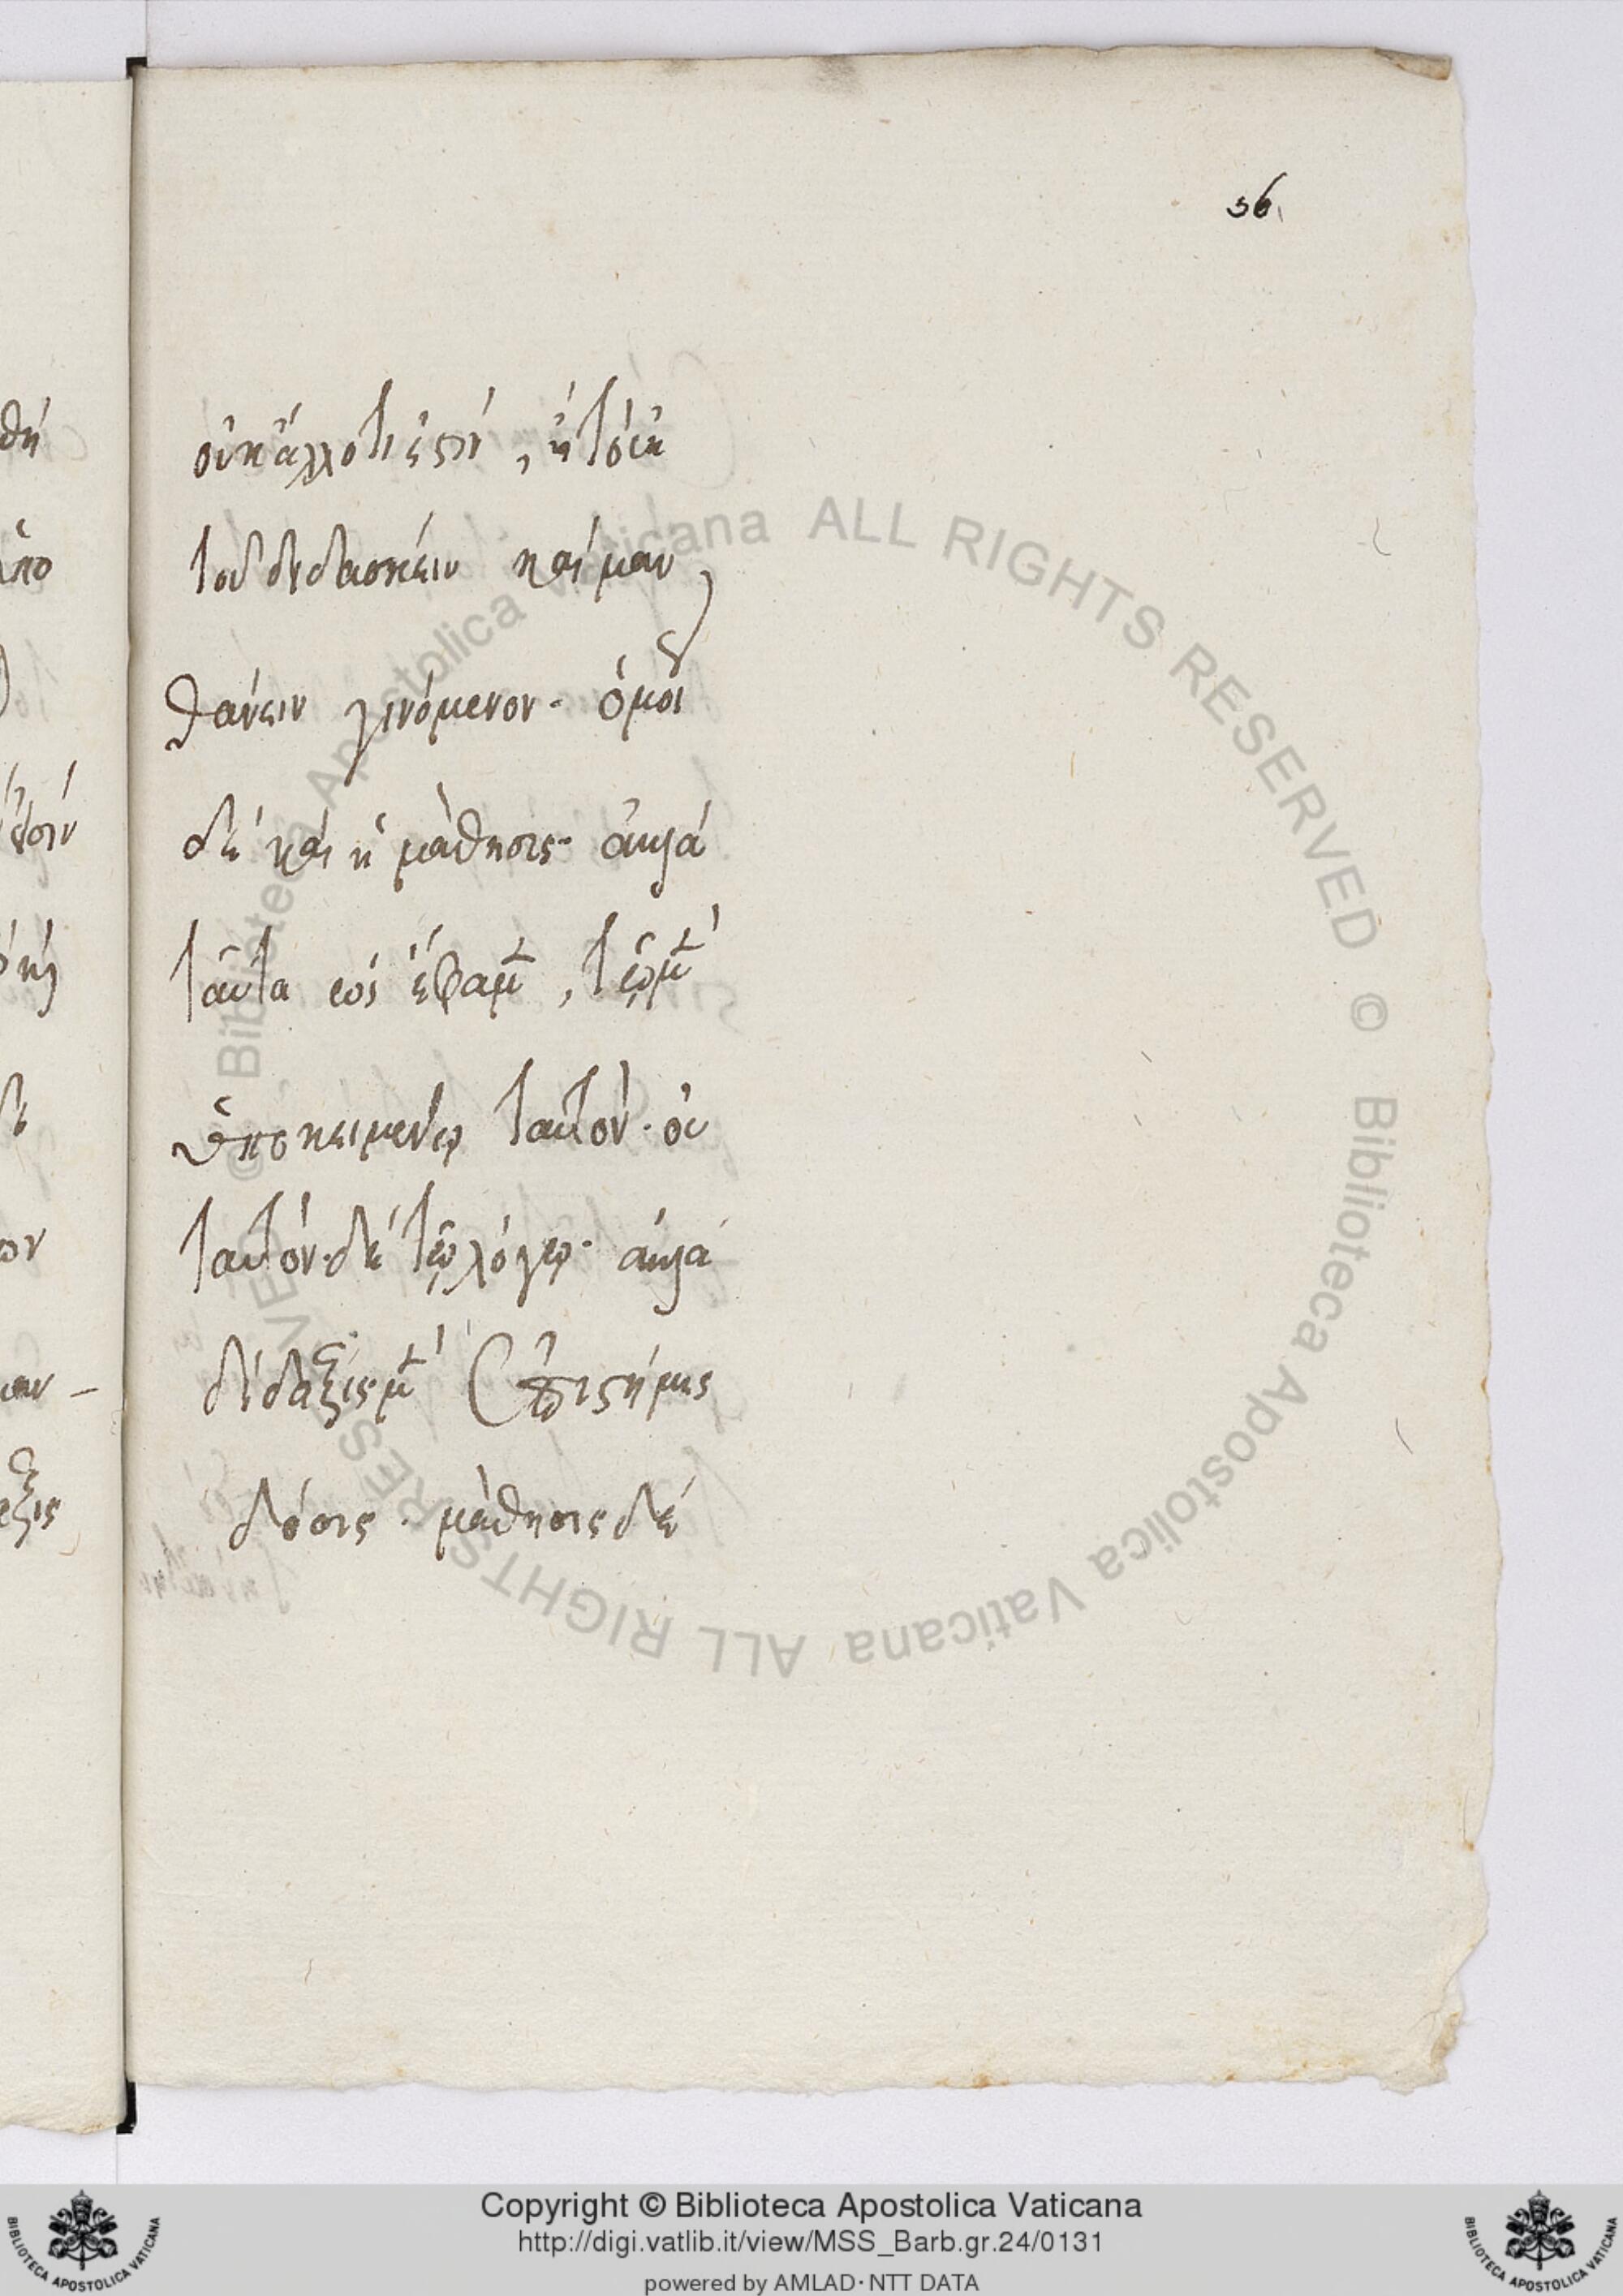 56
οὐκ ἄλλό τι ἐστί, ἢ τὸ ἐκ
τοῦ διδασκειν καὶ μαν
θάνειν γινόμενον· ὁμοί
δὲ καὶ ἡ μάθησις· ἀλλὰ
ταῦτα ὡς ἔφαμ̃, τῷ μ̃
ὑποκειμένῳ ταυτόν· οὐ
ταυτόν· δὲ τῷ λόγῳ· ἀλλὰ
δίδαξις μ̃ ἐπιστήμης
δόσις· μάθησις δὲ
ALL RIGHTS RESERVED © Biblioteca Apostolica Vaticana ALL RIGHTS RESERVED © Biblioteca Apostolica Vaticana
Copyright © Biblioteca Apostolica Vaticana
http://digi.vatlib.it/view/MSS_Barb.gr.24/0131
powered by AMLAD·NTT DATA
BIBLIOTECA APOSTOLICA VATICANA
BIBLIOTECA APOSTOLICA VATICANA